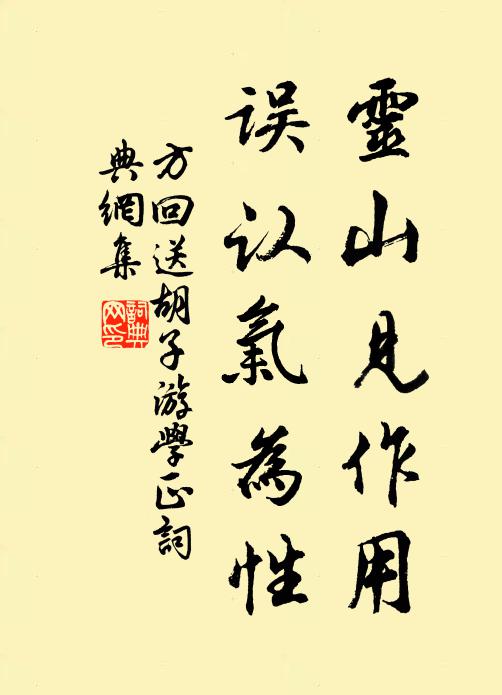 靈山見作用
误认氣為性
方回送胡子游學正詞
典網集
詞典
网印